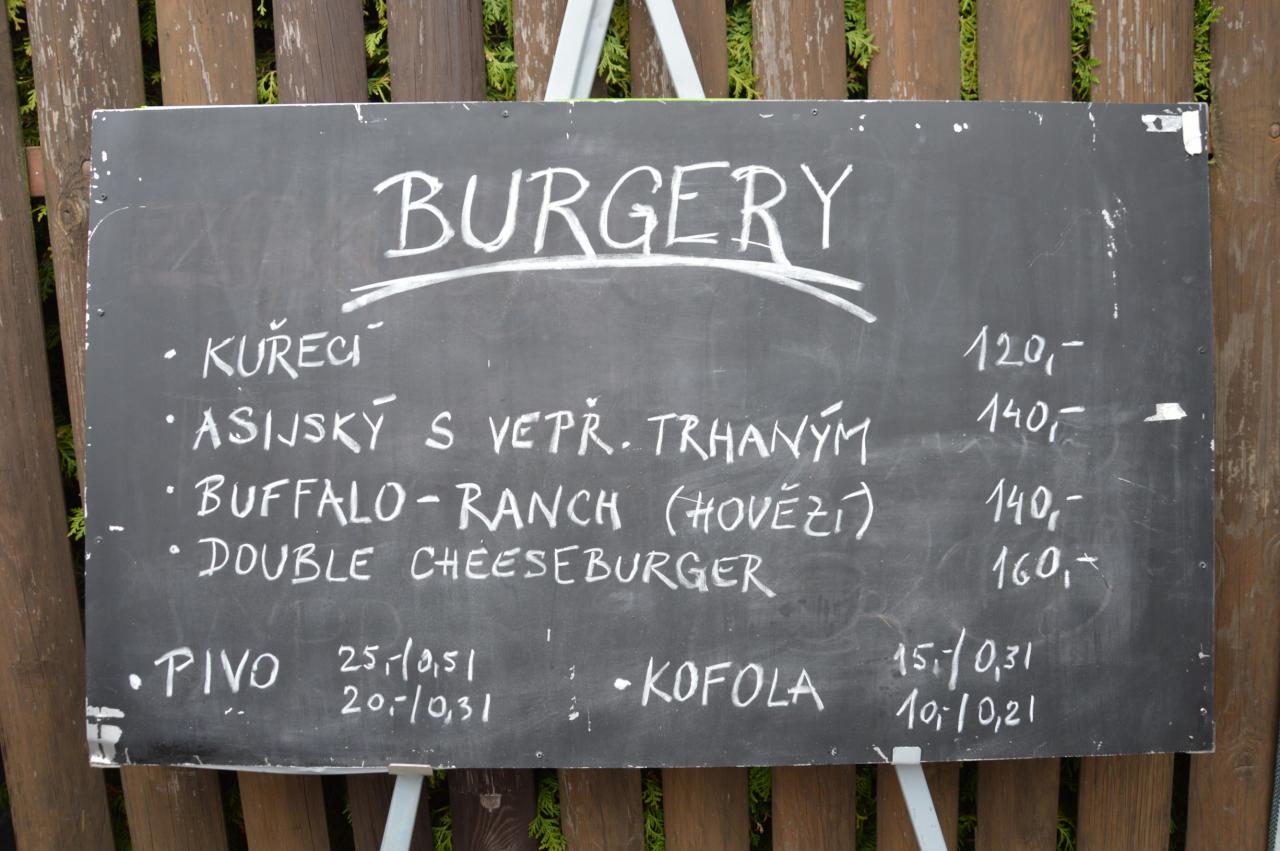 BURGERY
• KUŘECÍ 120,-
• ASIJSKÝ S VEPŘ. TRHANÝM 140,-
• BUFFALO-RANCH (HOVĚZÍ) 140,-
• DOUBLE CHEESEBURGER 160,-
• PIVO 25,-/0,5l • KOFOLA 15,-/0,3l
20,-/0,3l 10,-/0,2l